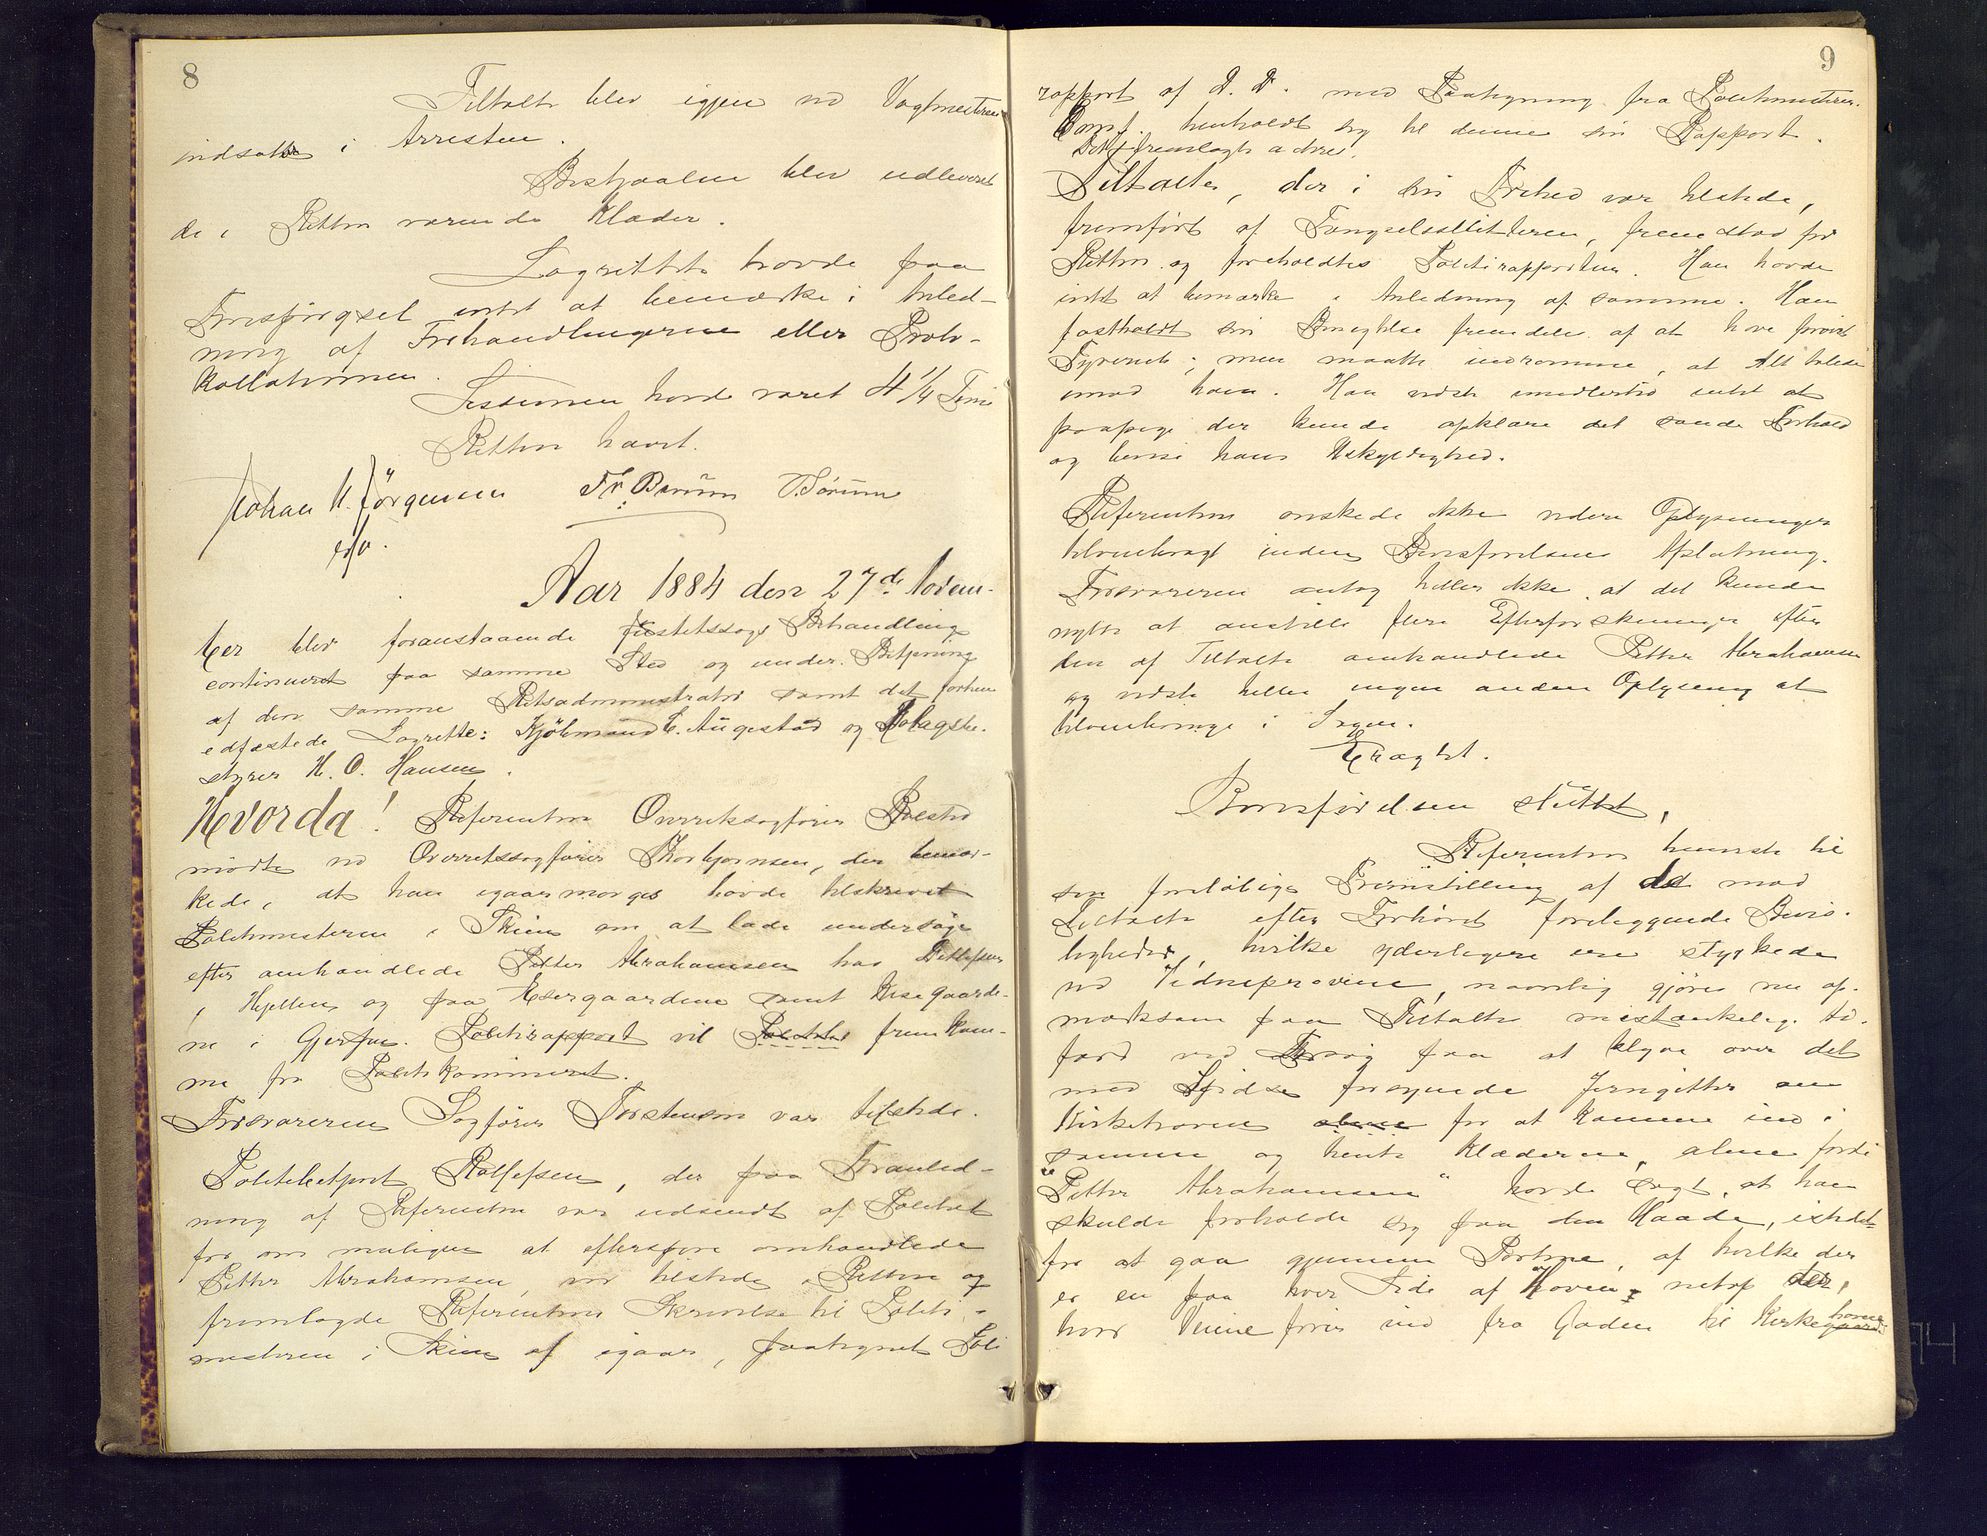 8
Tiltalte blev igjen ved Vagtmesteren
indsatte i Arresten.
Bestjaalne blev udleveret
de i Retten værende Klæder.
Lagrettet havde paa
Forespørgsel intet at bemærke i Anled-
ning af Forhandlingerne eller Proto-
kollationen.
Sessionen havde varet 4 1/4 Time
Retten hævet.
Johan H. Jørgensen Fr. Bruun T. Sørum
Aar 1884 den 27de Novem-
ber blev foranstaaende Justitssags Behandling
continueret paa samme Sted og under Betjening
af den samme Retsadministrator samt det forhen
edfæstede Lagrette: Kjøbmand C. Augestad og Bolagsbe-
styrer H. O. Hansen.
Hvorda! Referenten Overretssagfører Bolstad
mødte ved Overretssagfører Thorbjørnsen, der bemær-
kede, at han igaarmorges havde tilskrevet
Politimesteren i Skien om at lade undersøge
efter omhandlede Petter Abrahamsen hos Detlefsen
i Hjellen og paa Essergaardene samt Kisegaarde-
ne i Gjerpen. Politirapport vil frem kom-
me fra Politikammeret.
Forsvareren Sagfører Torstensen var tilstede.
Politibetjent Rollefsen, der paa Foranled-
ning af Referenten var udsendt af Politiet
for om muligen at efterspore omhandlede
Petter Abrahamsen, var tilstede i Retten og
fremlagde Referentens Skrivelse til Politi-
mesteren i Skien af igaar, paategnet Poli
9
rapport af D. D. med Paategning fra Politimesteren.
Comp. henholdt sig til denne sin Rapport.
Det fremlagte acteres.
Tiltalte, der i sin Frihed var tilstede,
fremført af Fængselsbetjenten, fremstod for
Retten og foreholdtes Politirapporten. Han havde
intet at bemærke i Anledning af samme. Han
fastholdt sin Benegtelse fremdeles af at have forøvet
Tyveriet; men maatte indrømme, at Alt talede
imod ham. Han vidste imidlertid intet at
paapege der kunde opklare det sande Forhold
og bevise hans Uskyldighed.
Referenten ønskede ikke videre Oplysninger
tilveiebragt inden Bevisførelsens Afslutning.
Forsvareren antog heller ikke at det kunde
nytte at anstille flere Efterforskninger efter
den af Tiltalte omhandlede Petter Abrahamsen
og vidste heller ingen anden Oplysning at
tilveiebringe i Sagen.
Eragtet.
Bevisførelsen sluttet,
Referenten henviste til
sin foreløbige Fremstilling af det mod
Tiltalte efter Forhøret foreliggende Bevis-
ligheder, hvilke yderligere ere styrkede
ved Vidneprøvene, navnlig gjøres nu op-
mærksom paa Tiltaltes mistænkelige Ad-
færd ved Forsøg paa at klyve over det
med Spidse forsynede Jerngitter om
Kirkehaven for at komme ind i
samme og hente Klæderne, alene fordi
"Petter Abrahamsen" havde sagt, at han
skulde forholde sig paa den Maade, istedet-
for at gaa gjennem Portene, af hvilke der
er en paa hver Side af Haven, netop der,
hvor Veiene fører ind fra Gaden til Kirkehaven